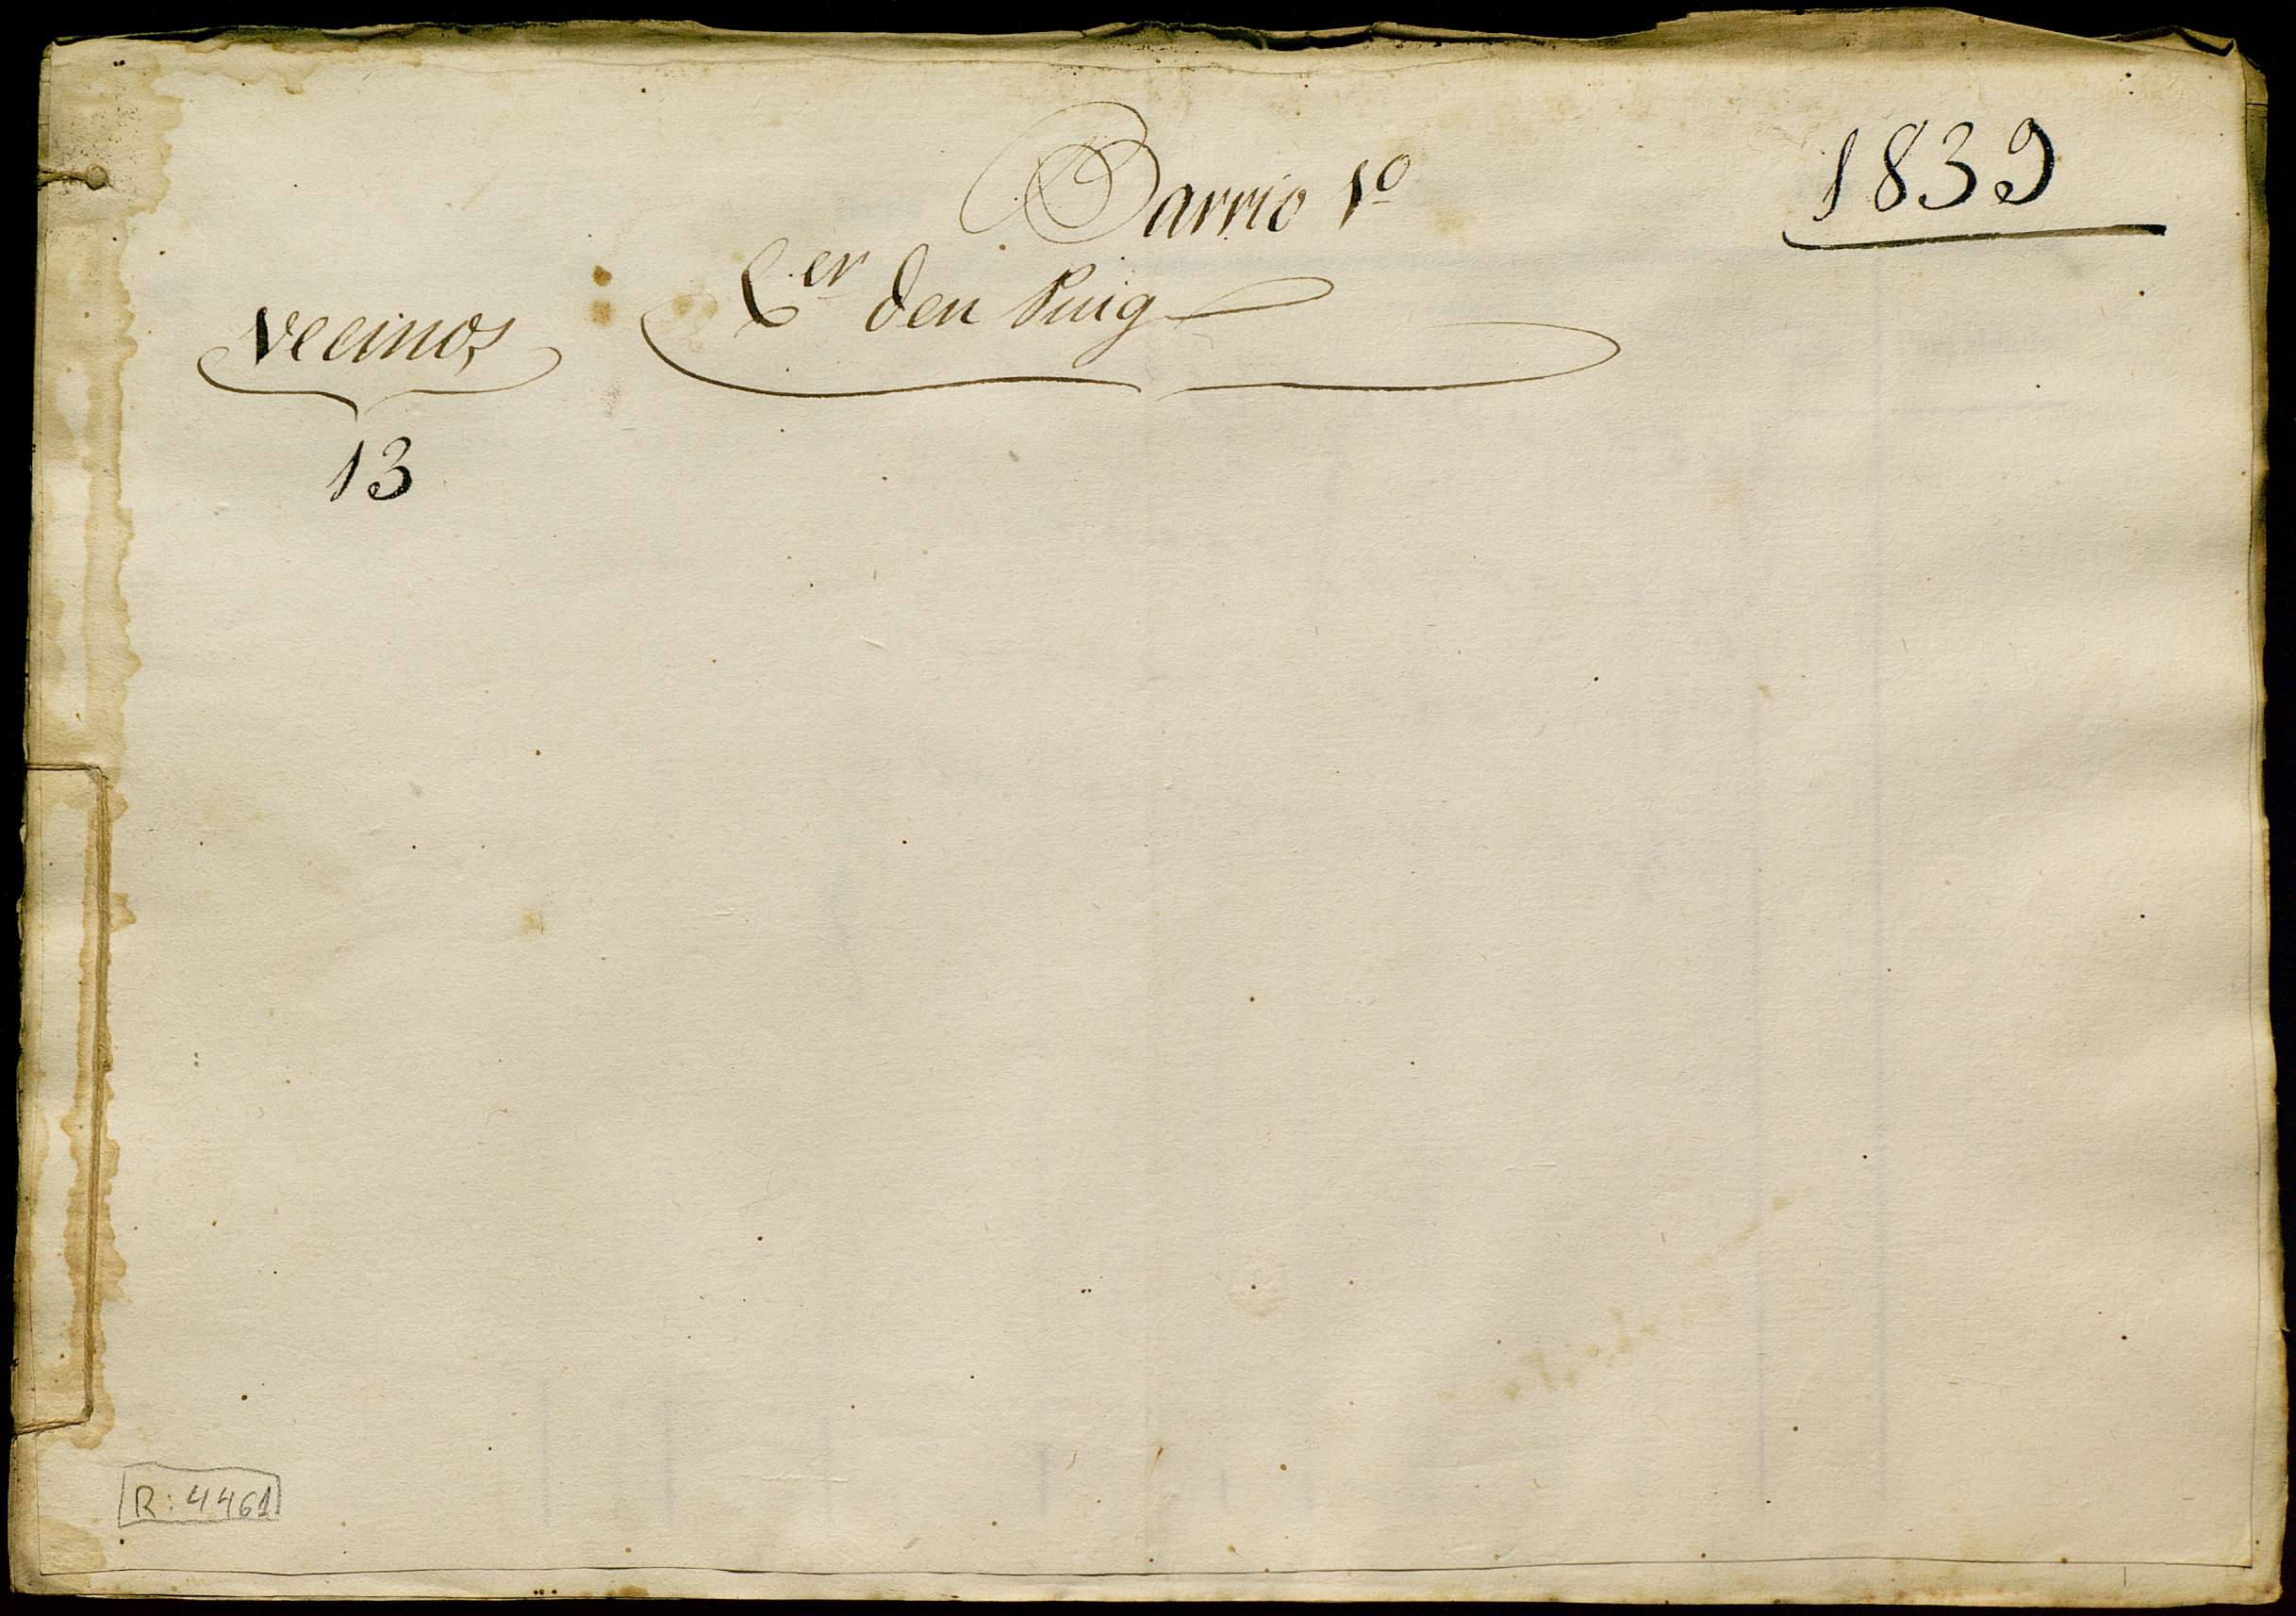 1839
Barrio 1º
Cer den Puig
vecinos
13
R: 4461